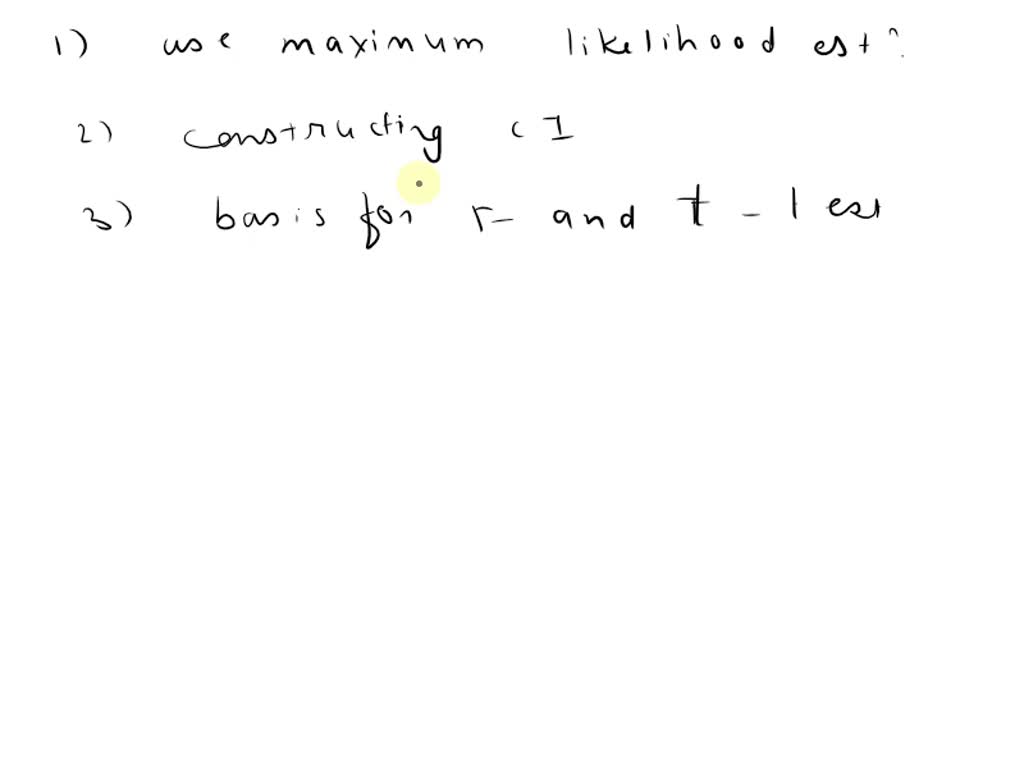 1) use maximum likelihood est^n.
2) constructing CI
3) basis for F- and t-test